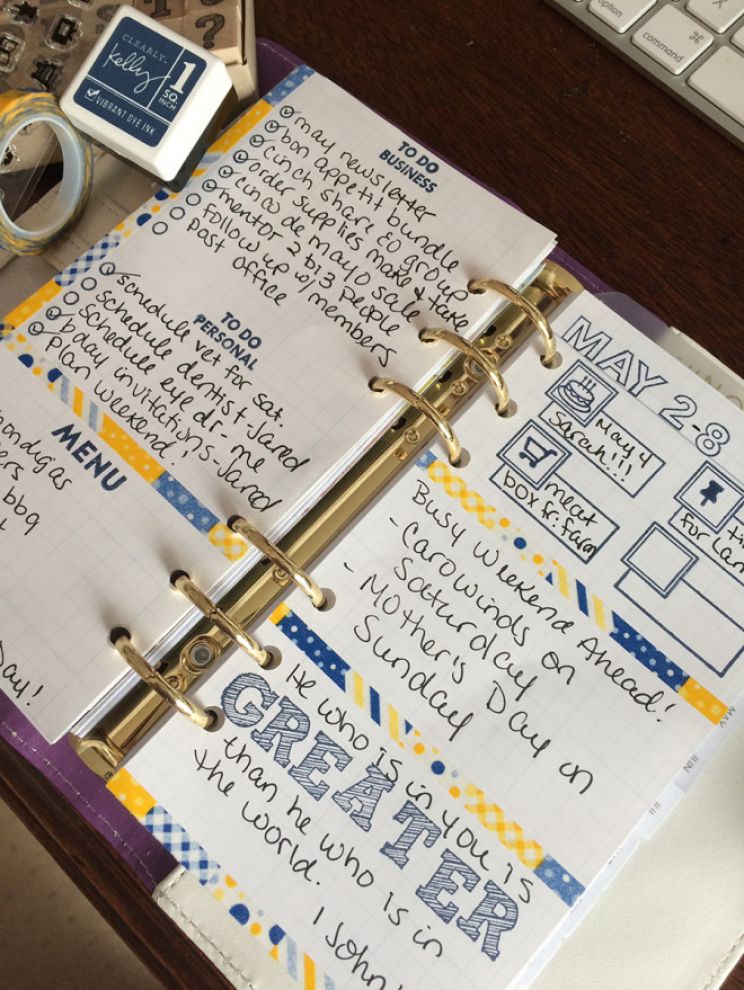 CLEARLY.
Kelly
1
SQ.
INCH
VIBRANT DYE INK
option
command
⌘
TO DO
BUSINESS
may newsletter
bon appetit bundle
cinch share EO group
order supplies make & take
cinco de mayo sale
mentor 2 biz people
follow up w/ members
post office
TO DO
PERSONAL
schedule vet for sat.
schedule dentist-Jared
schedule eye dr-me
bday invitations-Jared
plan weekend!
MENU
bbq
Day!
MAY 2-8
May 4
Sarah!!!
meat
box fr. farm
for
Busy Weekend Ahead!
- Carowinds on
Saturday
- Mother's Day on
Sunday
He who is in you is
GREATER
than he who is in
the world.
1 John
MAY
JUN